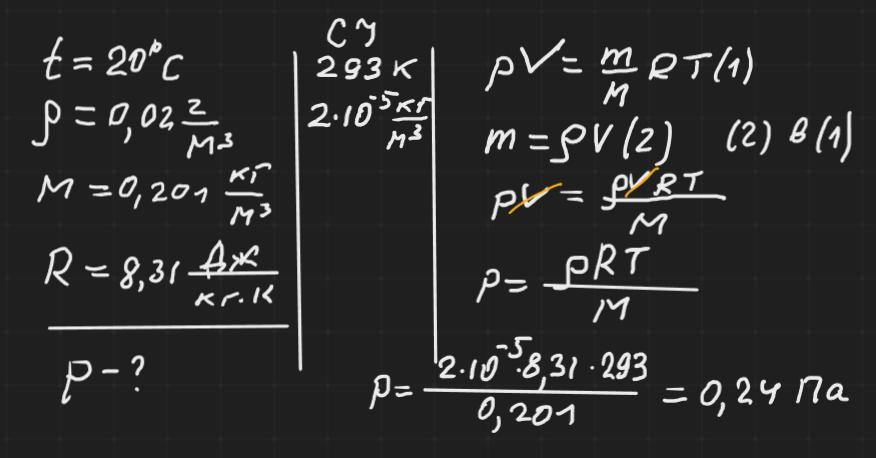 t = 20°C
ρ = 0,02 г/м³
M = 0,201 кг/м³
R = 8,31 Дж/кг·К
p - ?
СИ
293 К
2·10⁻⁵ кг/м³
pV = m/M RT (1)
m = ρV (2) (2) в (1)
pV = ρVRT/M
p = ρRT/M
p = 2·10⁻⁵·8,31·293/0,201 = 0,24 Па